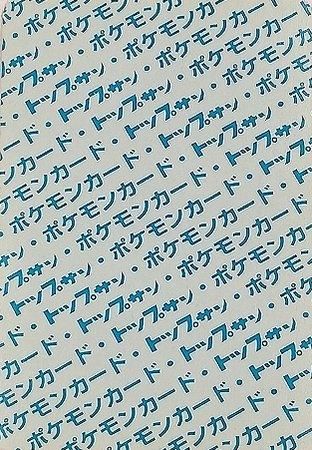 ポケモンカード
ポケモンカード・トップサン
トップサン・ポケモンカード
ポケモンカード・トップサン・ポケモンカード
ポケモンカード・トップサン
トップサン・ポケモンカード・トップサン
ポケモンカード・トップサン・ポケモンカード
トップサン・ポケモンカード
ポケモンカード・トップサン
ポケモンカード・トップサン・ポケモンカード
トップサン・ポケモンカード
ポケモンカード・トップサン
ポケモンカード